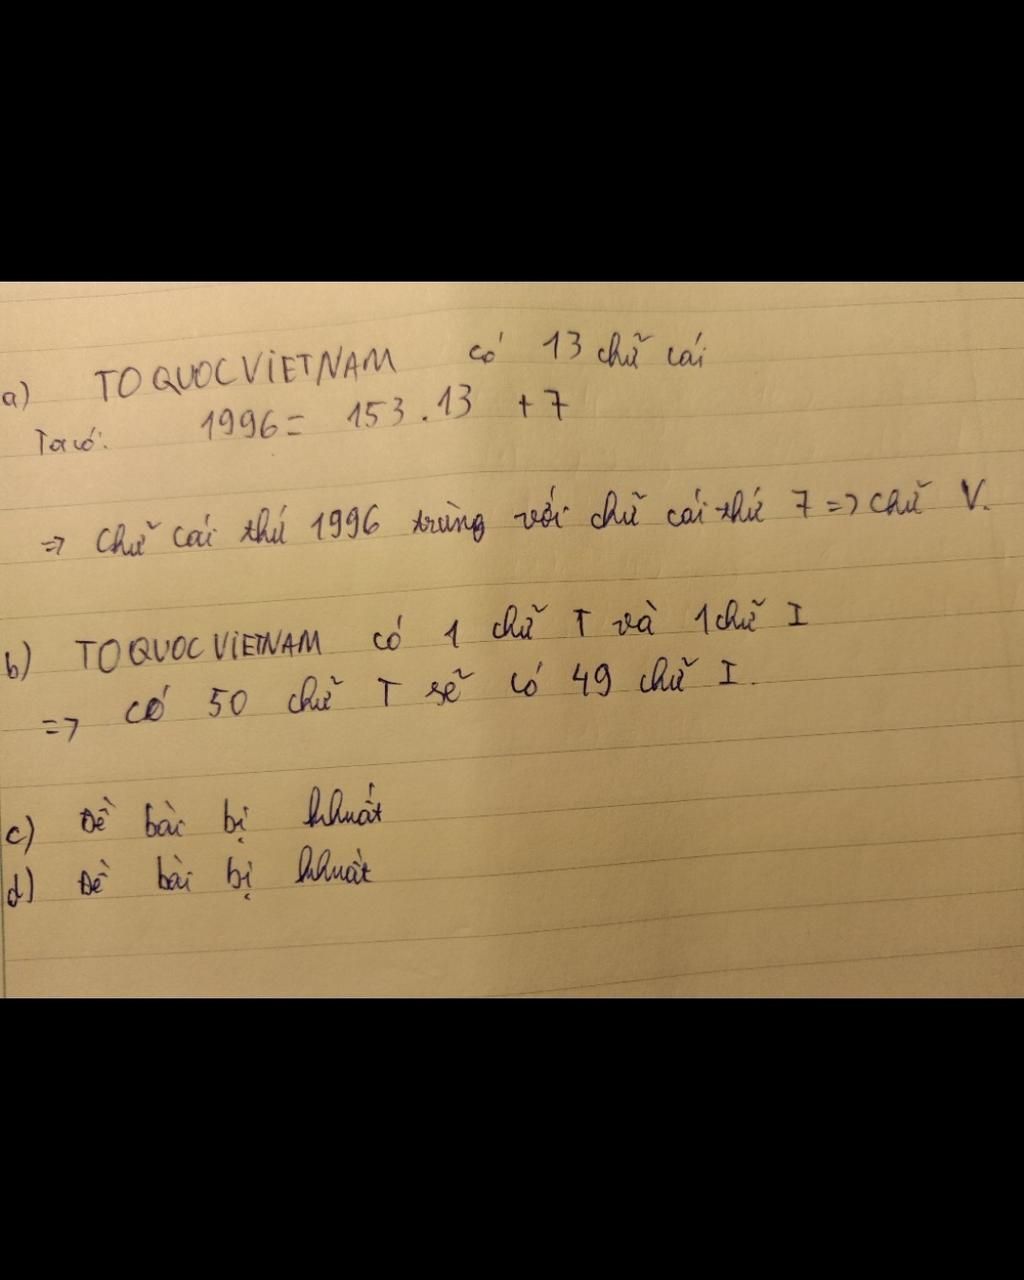 a) TOQUOCVIETNAM có 13 chữ cái
Ta có: 1996 = 153.13 + 7
=> Chữ cái thứ 1996 trùng với chữ cái thứ 7 => chữ V.
b) TOQUOCVIETNAM có 1 chữ T và 1 chữ I
=> có 50 chữ T sẽ có 49 chữ I.
c) Đề bài bị khuất
d) Đề bài bị khuất